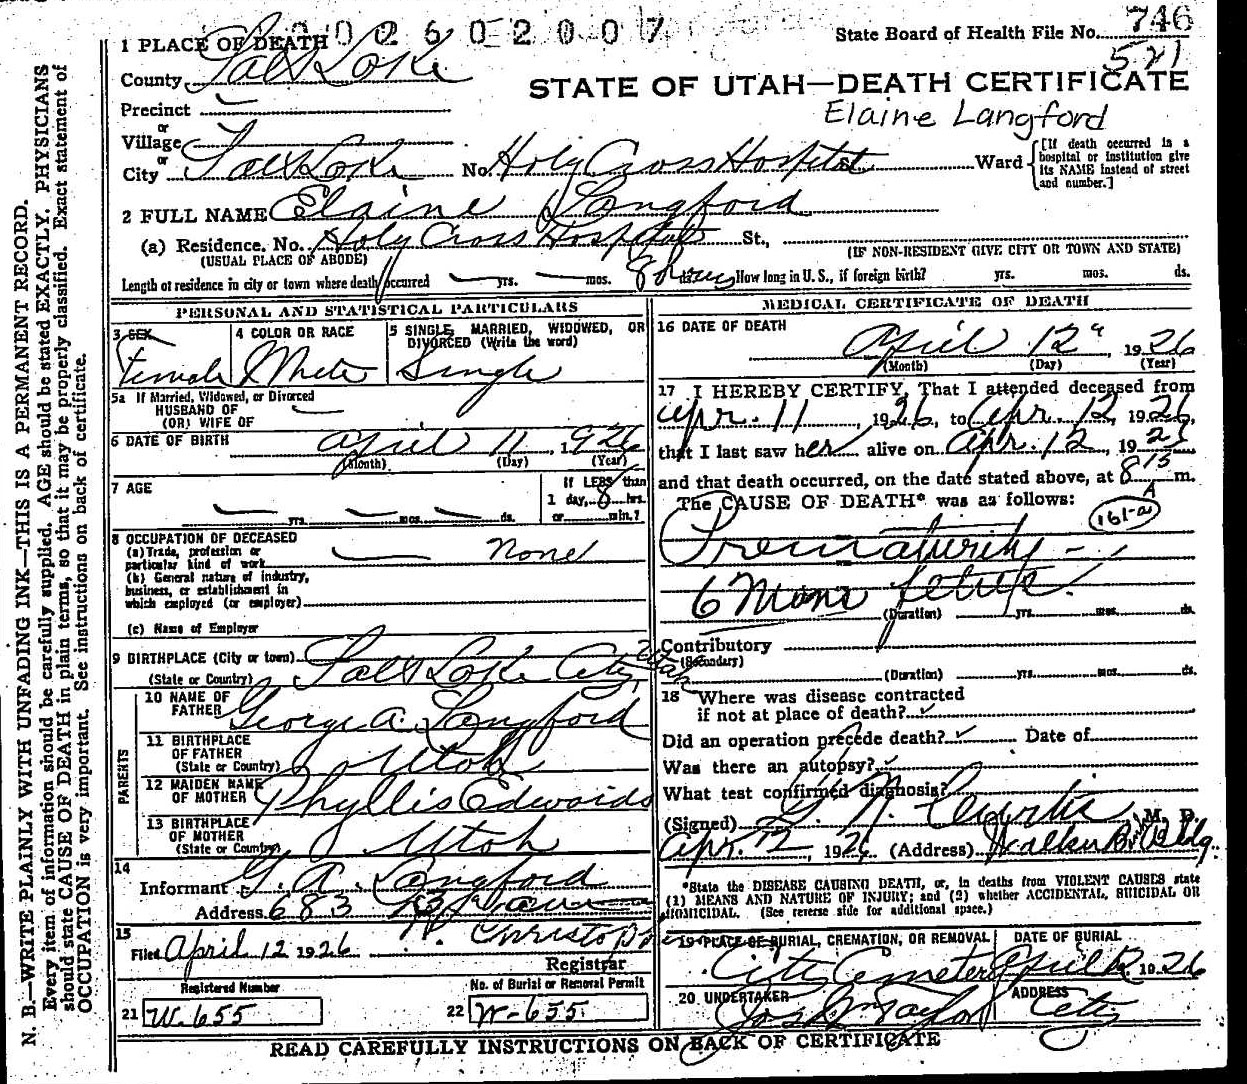 002602007
State Board of Health File No. 746
521
1 PLACE OF DEATH
County Salt Lake
STATE OF UTAH—DEATH CERTIFICATE
Precinct
Elaine Langford
or
Village
or
City Salt Lake No. Holy Cross Hospital Ward
[If death occurred in a hospital or institution give its NAME instead of street and number.]
2 FULL NAME Elaine Langford
(a) Residence. No. Holy Cross Hospital St.,
(USUAL PLACE OF ABODE) (IF NON-RESIDENT GIVE CITY OR TOWN AND STATE)
Length of residence in city or town where death occurred yrs. mos. 8 hours How long in U. S., if foreign birth? yrs. mos. ds.
PERSONAL AND STATISTICAL PARTICULARS
3 SEX 4 COLOR OR RACE 5 SINGLE, MARRIED, WIDOWED, OR DIVORCED (Write the word)
Female White Single
5a If Married, Widowed, or Divorced
HUSBAND OF
(OR) WIFE OF
6 DATE OF BIRTH April 11, 1926
(Month) (Day) (Year)
7 AGE yrs. mos. ds.
If LESS than
1 day, 8 hrs.
or min.?
8 OCCUPATION OF DECEASED
(a) Trade, profession or
particular kind of work None
(b) General nature of industry,
business, or establishment in
which employed (or employer)
(c) Name of Employer
9 BIRTHPLACE (City or town) Salt Lake City, Utah
(State or Country)
PARENTS
10 NAME OF
FATHER George A. Langford
11 BIRTHPLACE
OF FATHER
(State or Country) Utah
12 MAIDEN NAME
OF MOTHER Phyllis Edwards
13 BIRTHPLACE
OF MOTHER
(State or Country) Utah
14
Informant G. A. Langford
Address 683
15
Filed April 12 1926
Registrar
Registered Number No. of Burial or Removal Permit
21 W. 655 22 W-655
MEDICAL CERTIFICATE OF DEATH
16 DATE OF DEATH
April 12", 1926
(Month) (Day) (Year)
17 I HEREBY CERTIFY, That I attended deceased from
Apr. 11, 1926, to Apr. 12, 1926,
that I last saw her alive on Apr. 12, 1926
and that death occurred, on the date stated above, at 8 15 A m.
The CAUSE OF DEATH* was as follows:
161-a
Prematurity -
6 Mons fetus.
(Duration) yrs. mos. ds.
Contributory
(Secondary)
(Duration) yrs. mos. ds.
18 Where was disease contracted
if not at place of death?
Did an operation precede death? Date of
Was there an autopsy?
What test confirmed diagnosis?
(Signed) G. N. Curtis, M. D.
Apr. 12, 1926 (Address) Walker Bldg.
*State the DISEASE CAUSING DEATH, or, in deaths from VIOLENT CAUSES state
(1) MEANS AND NATURE OF INJURY; and (2) whether ACCIDENTAL, SUICIDAL OR
HOMICIDAL. (See reverse side for additional space.)
19 PLACE OF BURIAL, CREMATION, OR REMOVAL DATE OF BURIAL
City Cemetery April 12 1926
20 UNDERTAKER ADDRESS
Jos. Wm Taylor City
READ CAREFULLY INSTRUCTIONS ON BACK OF CERTIFICATE
N. B.—WRITE PLAINLY WITH UNFADING INK—THIS IS A PERMANENT RECORD.
Every item of information should be carefully supplied. AGE should be stated EXACTLY. PHYSICIANS
should state CAUSE OF DEATH in plain terms, so that it may be properly classified. Exact statement of
OCCUPATION is very important. See instructions on back of certificate.